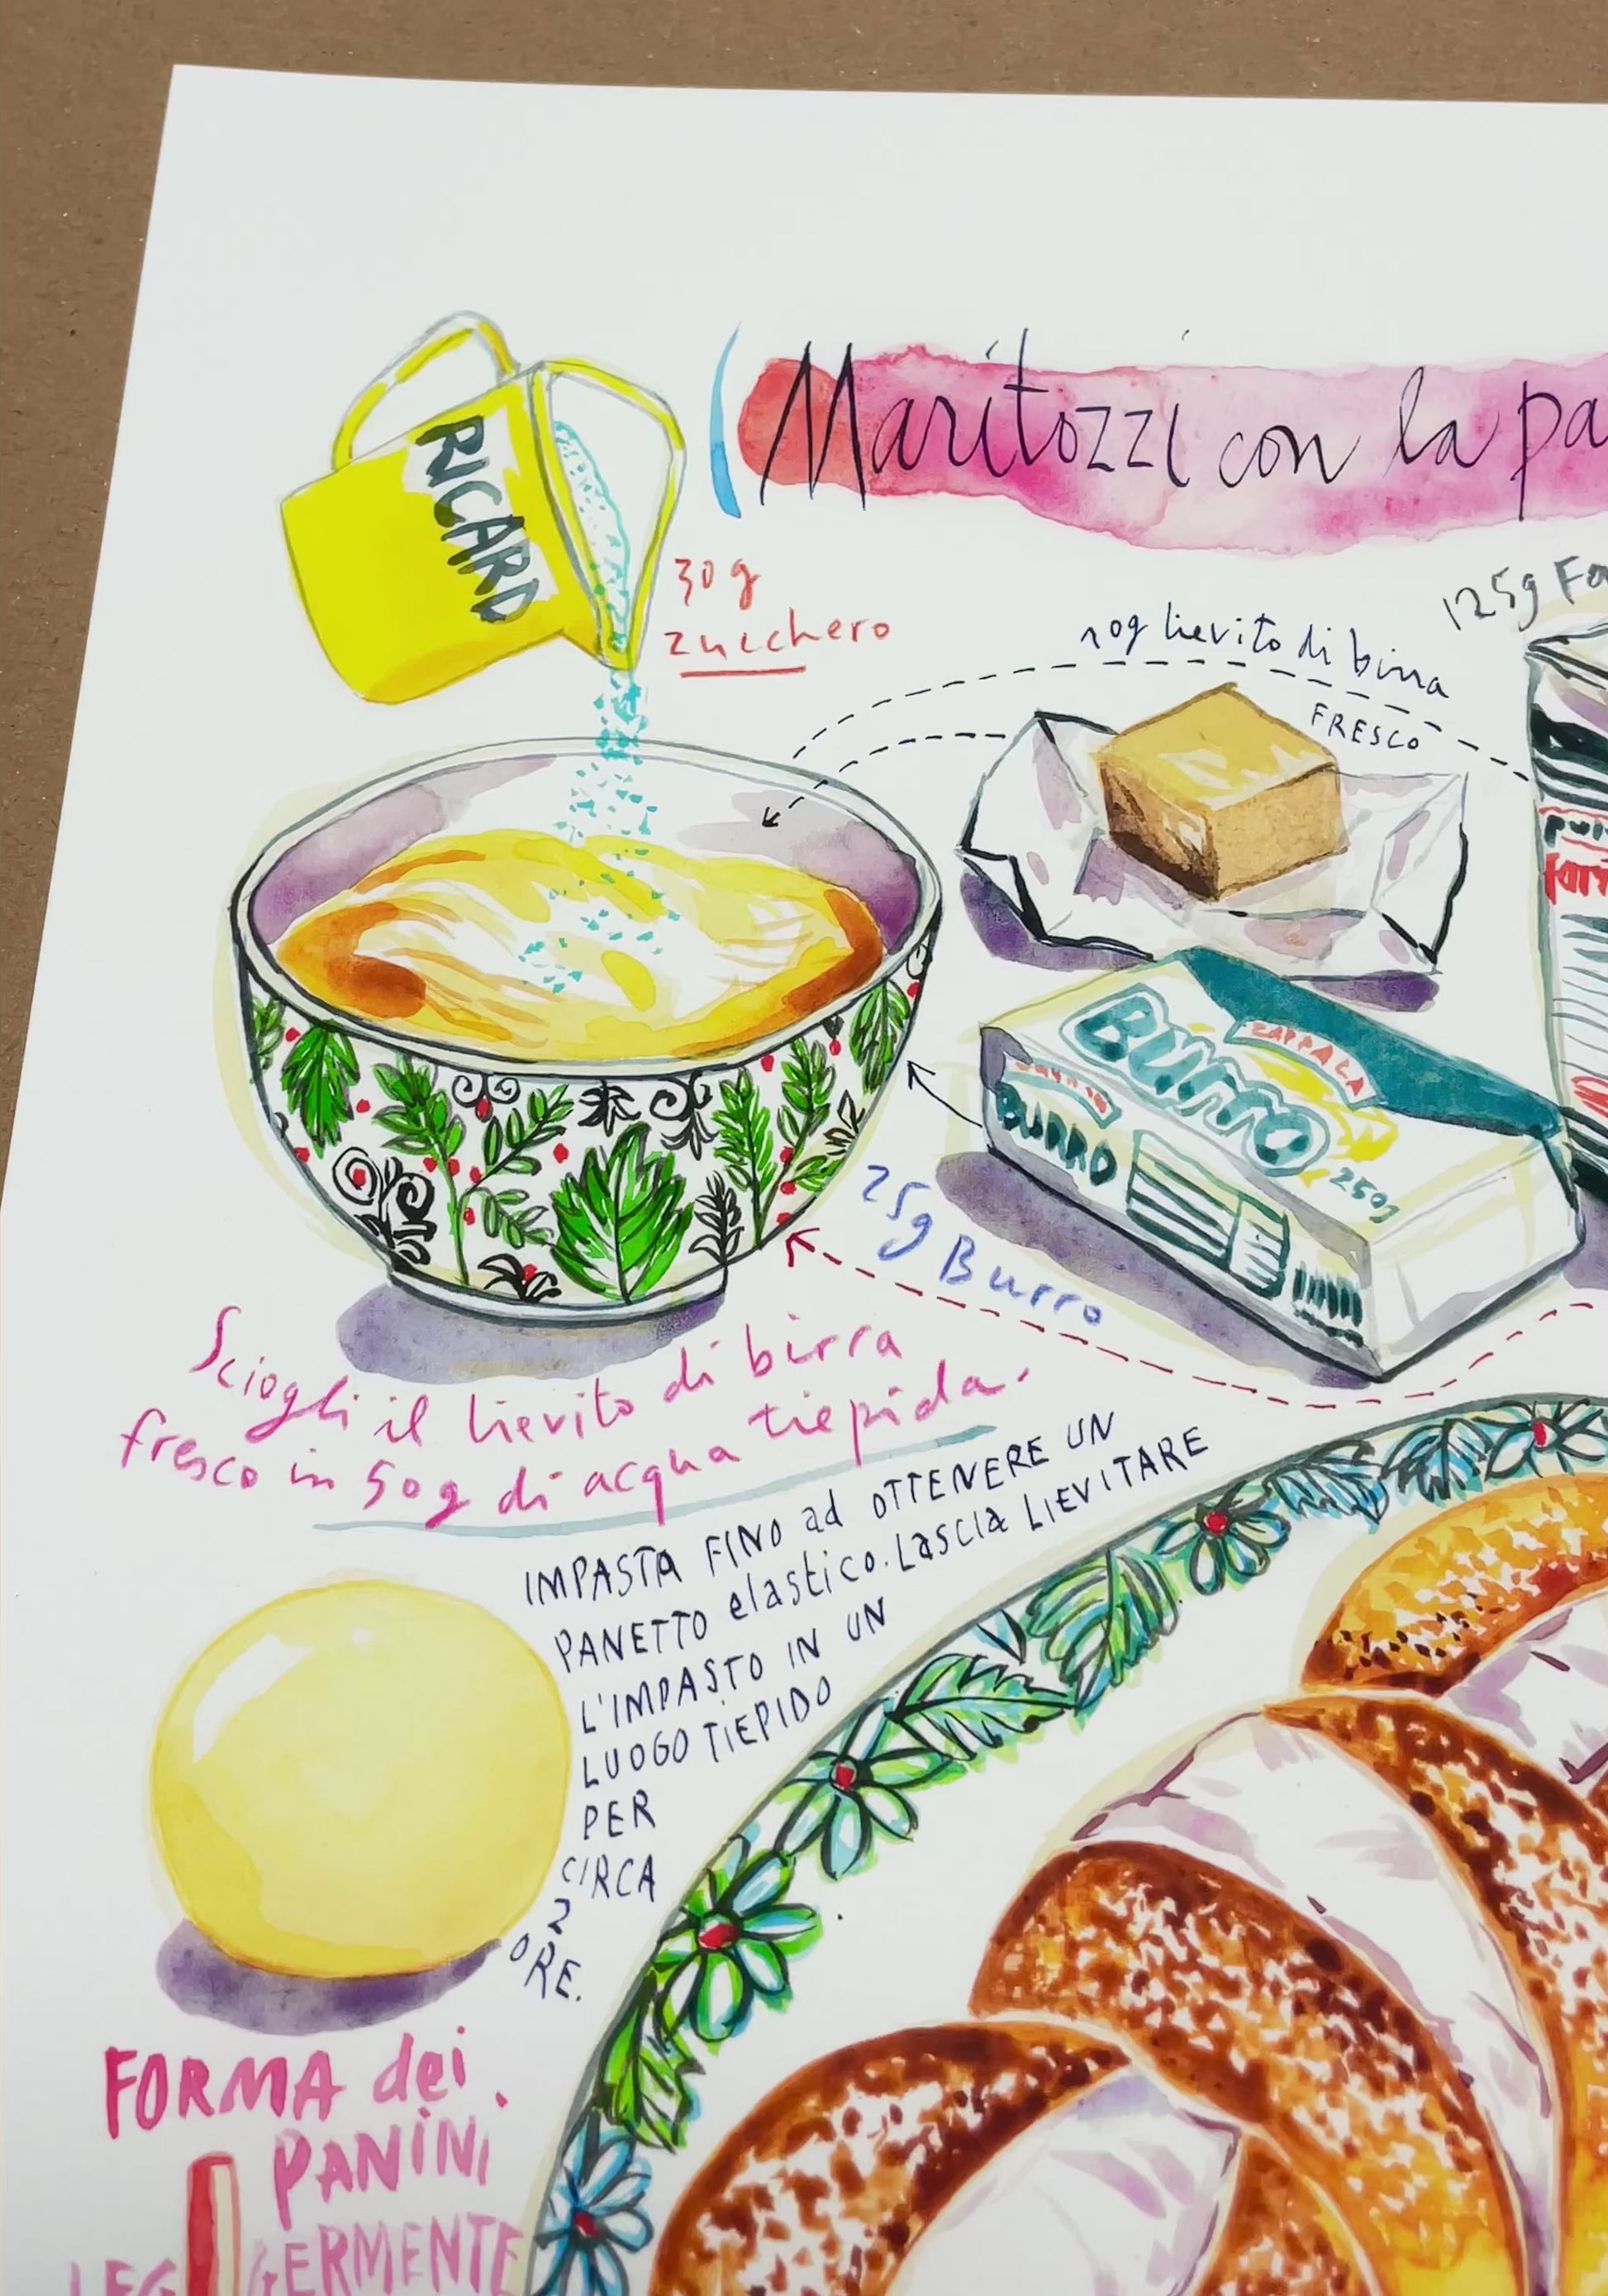 Maritozzi con la pa
RICARD
30g
zucchero
10g lievito di birra
FRESCO
125g Fa
BURRO
ZAPPALA
250g
BURRO
25g Burro
Sciogli il lievito di birra
fresco in 50g di acqua tiepida.
IMPASTA FINO ad OTTENERE UN
PANETTO elastico. LASCIA LIEVITARE
L'IMPASTO IN UN
LUOGO TIEPIDO
PER
CIRCA
2
ORE.
FORMA dei
PANINI
LEGGERMENTE